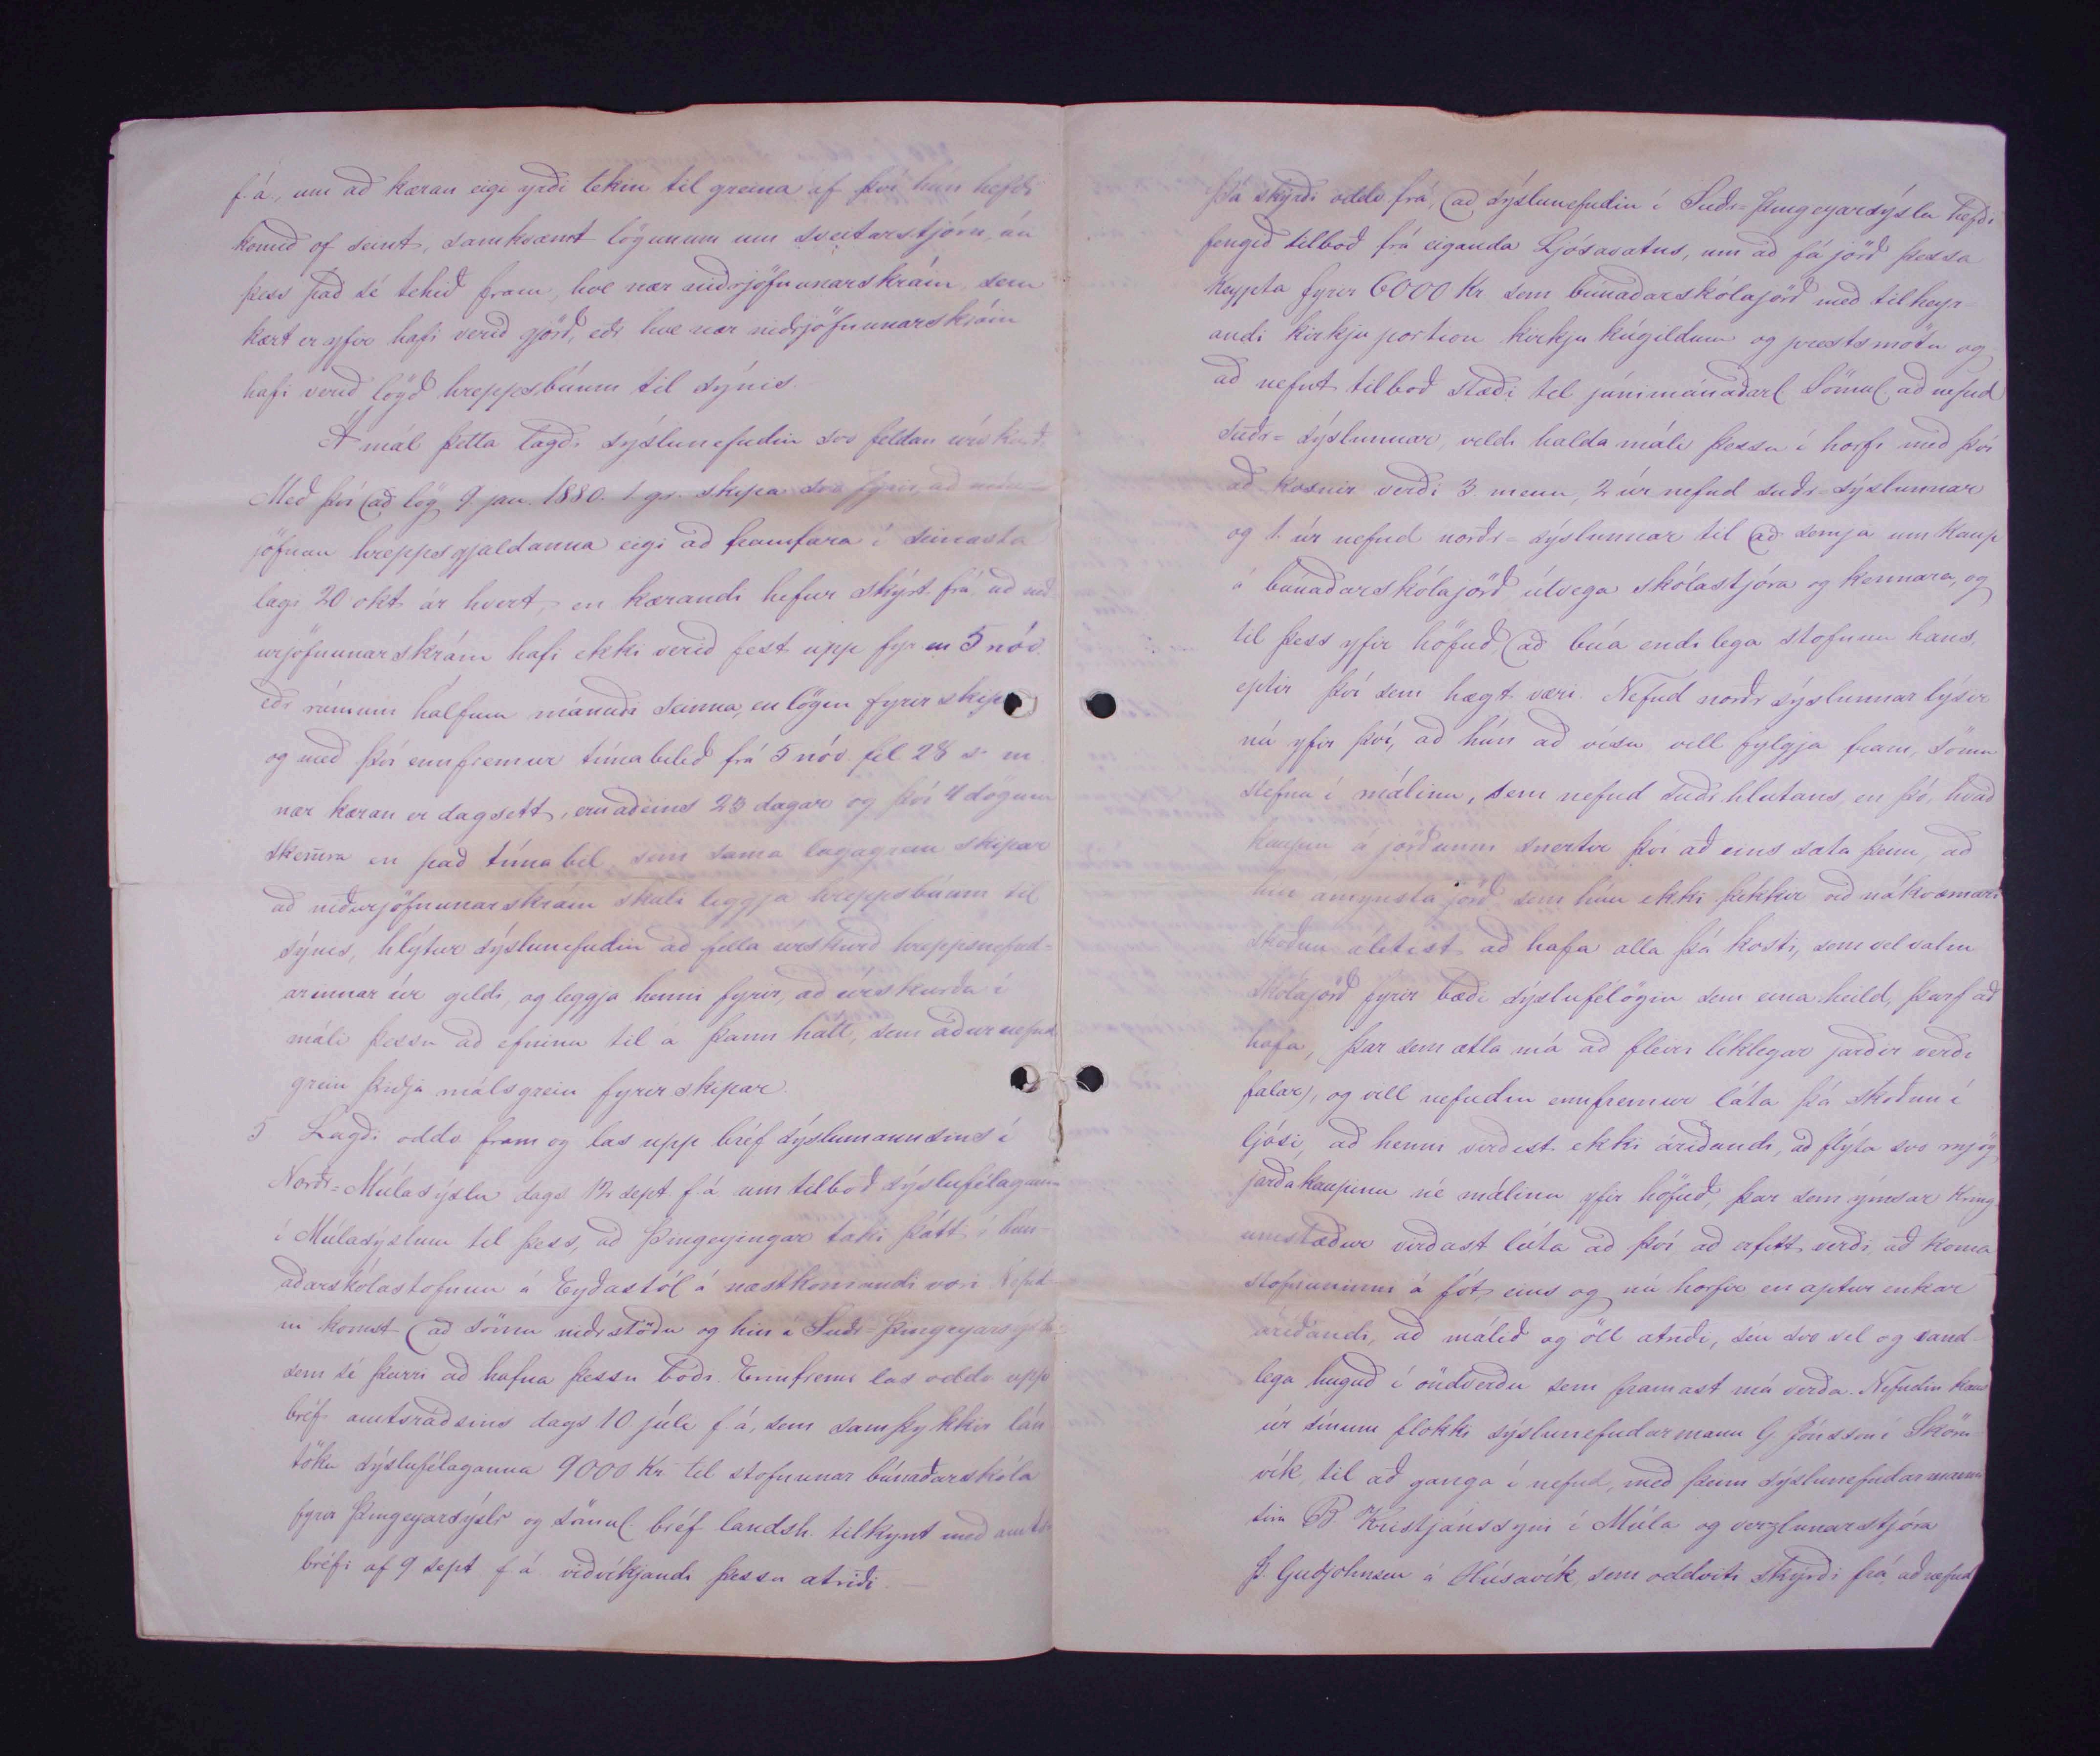 f. á, um að kæran eigi yrði tekin til greina af því hun hefði
komið of seint, samkvæmt lögunum um sveitarstjórn, án
þess það sé tekið fram, hve nær niðrjöfnunarskráin, sem
kært er yfir hafi verið gjörð, eðr hve nær niðrjöfnunarskráin
hafi verið lögð hreppsbúum til sýnis.
Á mál þetta lagði sýslunefndin svo feldan úrskurð:
Með því að lög 9. jan. 1880. 1. gr. skipa svo fyrir, að niðr
jöfnun hreppsgjaldanna eigi að framfara í seinasta
lagi 20 okt. ár hvert, en kærandi hefur skýrt frá að nið
urjöfnunarskráin hafi ekki verið fest upp fyr en 5 nóv.
eðr rúmum hálfum mánuði seinna, en lögin fyrir skipa
og með því ennfremur tímabilið frá 5 nóv til 28 s. m.
nær kæran er dagsett, eru aðeins 23 dagar og því 4 dögum
skemra en það tímabil, sem sama lagagrein skipar
að niðurjöfnunarskráin skuli leggja hreppsbúum til
sýnis, hlýtur sýslunefndin að fella úrskurð hreppsnefnd-
arinnar úr gildi, og leggja henni fyrir, að úrskurða í
máli þessu að efninu til á þann hátt, sem áðurnefnd
grein þriðja málsgrein fyrir skipar.
5 Lagði oddv. fram og las upp bréf sýslumannsins í
Norðr-Múlasýslu dags 12 sept. f. á um tilboð sýslufélaganna
í Múlasýslum til þess, að Þingeyingar taki þátt í bún-
aðarskólastofnun á Eyðastól á næstkomandi vori. Nefnd-
in komst að sömu niðrstöðu og hin í Suðr-Þingeyarsýslu
sem sé þurri að hafna þessu boði. Ennfremr las oddv. upp
bréf amtsráðsins dags 10 júli f. á, sem samþykkir lán
töku sýslufélaganna 9000 Kr til stofnunar búnaðarskóla
fyrir Þingeyarsýslr og sömul. bréf landsh. tilkynt með amts
bréfi af 9 sept f á viðvíkjandi þessu atriði. —
Þá skýrði oddv. frá, að sýslunefndin í Suðr-Þingeyarsýslu hefði
fengið tilboð frá eiganda Ljósavatns, um að fá jörð þessa
keypta fyrir 6000 Kr sem búnaðarskólajörð með tilheyr-
andi kirkju portion kirkju kúgildum og prestsmötu og
að nefnt tilboð stæði til júnimánaðarl. Sömul. að nefnd
Suðr-sýslunnar, vildi halda máli þessu í horfi með því
að kosnir verði 3 menn, 2 úr nefnd suðr-sýslunnar
og 1. úr nefnd norðr-sýslunnar til að semja um kaup
á búnaðarskólajörð útvega skólastjóra og kennara, og
til þess yfir höfuð, að búa endilega stofnun hans,
eptir því sem hægt væri. Nefnd norðr sýslunnar lýsir
nú yfir því, að hún að vísu vill fylgja fram, sömu
stefnu í málinu, sem nefnd suðr hlutans, en þó, hvað
kaupin á jörðunni snertir því að eins sæta þeim, að
hin ámynsta jörð sem hún ekki þekkir við nákvæmari
skoðun álitist að hafa alla þá kosti, sem vel valin
skólajörð fyrir bæði sýslufélögin sem eina heild, þarf að
hafa, þar sem ætla má að fleiri líklegar jarðir verði
falar), og vill nefndin ennfremur láta þá skoðun í
ljósi, að henni virðist ekki áríðandi, að flýta svo mjög
jarðakaupinu né málinu yfir höfuð, þar sem ýmsar kring
umstæður virðast lúta að því að erfitt verði að koma
stofnuninni á fót, eins og nú horfir en aptur enkar
áríðandi, að málið og öll atriði, séu svo vel og vand-
lega huguð í öndverðu sem framast má verða. Nefndin kaus
úr sínum flokki sýslunefndarmann G Jónsson í Sköru-
vík, til að ganga í nefnd, með þeim sýslunefndarmanni
sira B Kristjánssyni í Múla og verzlunarstjóra
Þ. Guðjohnsen á Húsavík, sem oddviti skýrði frá, að nefnd